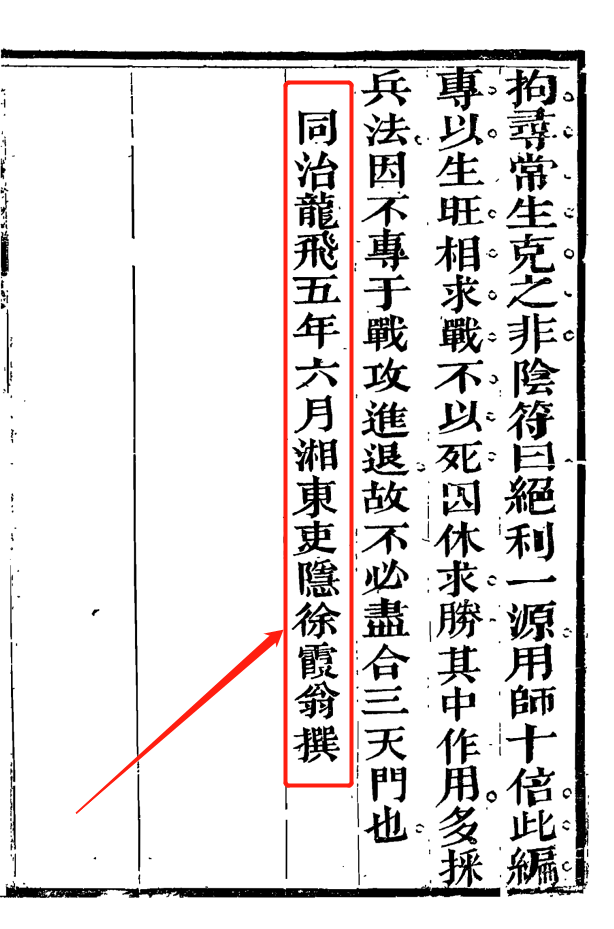 拘尋常生克之非陰符曰絕利一源用師十倍此編
專以生旺相求戰不以死囚休求勝其中作用多採
兵法因不專于戰攻進退故不必盡合三天門也
同治龍飛五年六月湘東吏隱徐霞翁撰